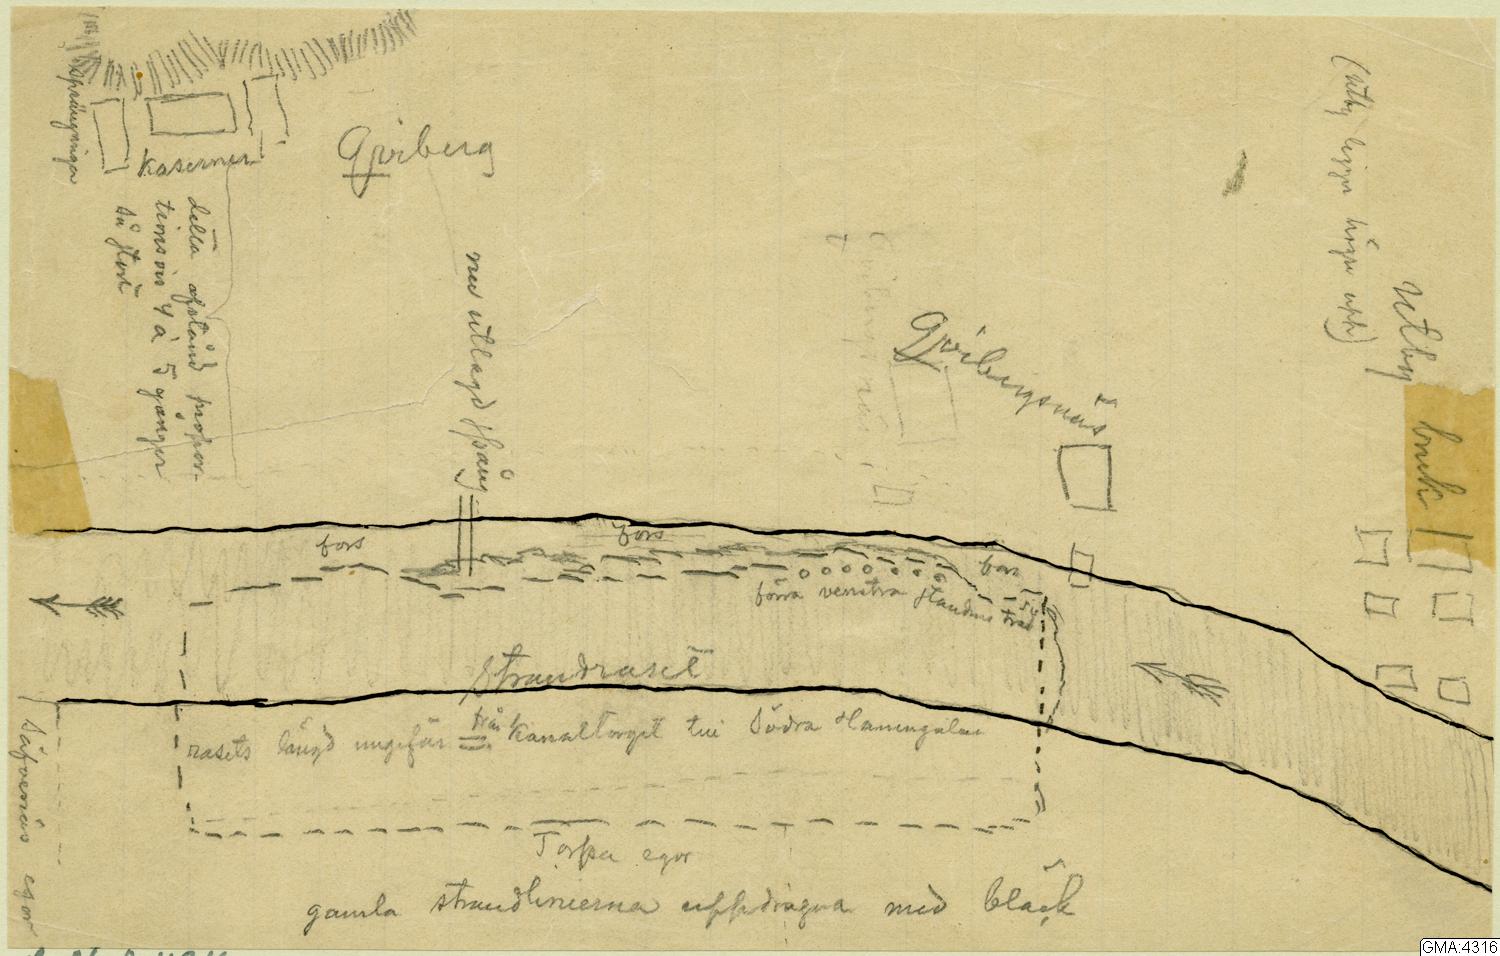 sprängningar
Kaserner
Gjöiberg
detta afstånd propor-
tionsvis 4 à 5 gånger
så stort
ned utlagd spång
Gjöibergsnäs
(Utby ligger högre upp)
Utby
bruk
fors
fors
fors
förra venstra
strandens
Strandraset
rasets längd ungefär från Kanaltorget till Södra Hamngatan
Säfvenäs egor
Torpa egor
gamla strandlinierna uppdragna med bläck
GMA:4316